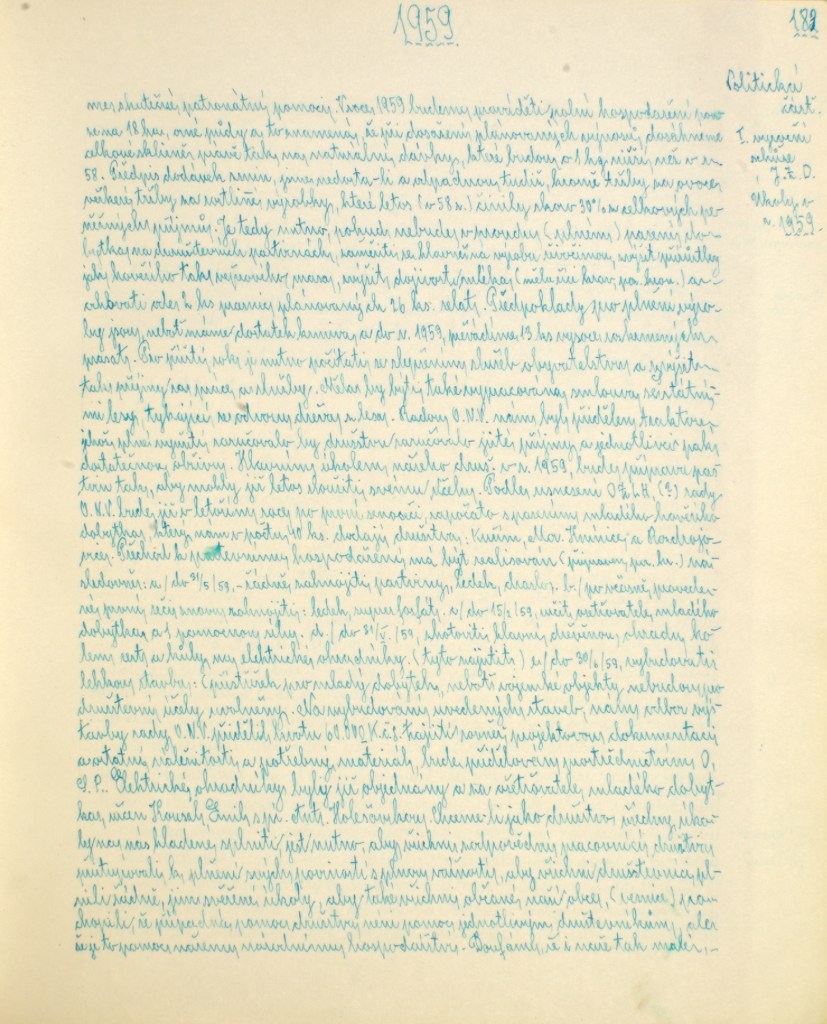 1959
182
Politická
část.
I. výroční
schůze
J.Z.D.
Úkoly v
r. 1959.
me skutečné patronátní pomoci. V roce 1959 budeme prováděti polní hospodaření pouze
se na 18 ha, orné půdy a to znamená, že při dosažení plánovaných výnosů, dosáhneme
celkové sklizně právě tak, na naturální dávky, které budou o 1 kg nižší, než v r.
58. Předpis dodávek zrnin, jsme nedosta-li a odpadnou tudíž, kromě tržby za ovoce,
veškeré tržby za rostlinné výrobky, které letos (v 58 r.) činily skoro 38% z celkových pe-
něžních příjmů. Je tedy nutno, pokud nebude v provozu (plném) pasení do-
bytka, na družstevních pastvinách, zaměřiti se hlavně na výrobu živočišnou, zvýšit přírůstky
jak hovězího tak vepřového masa, zvýšit dojivost mléka,
chovati vedle 2 ks prasnic plánovaných 26 ks. selat. Předpoklady pro plnění výro-
by jsou, neboť máme dostatek krmiva, a do r. 1959, převádíme 13 ks vysoce
prasat. Pro příští rok, je nutno počítati se zlepšením služeb obyvatelstvu a zvýšit
tak příjmy za práce a služby. Měla by býti také vypracována, smlouva se státní-
mi lesy, týkající se odvozu dřeva z lesa. Radou O.N.V. nám byl přidělen, traktor,
jehož plné využití zaručovalo by družstvu jisté příjmy a jednotlivcům pak,
dostatečnou obživu. Hlavním úkolem našeho druž. v r. 1959, bude příprava pas-
tvin tak, aby mohly již letos sloužiti svému účelu. Podle usnesení (?) rady
O.N.V. bude, již v letošním roce po první senoseči, započato s pasením mladého hovězího
dobytka, který nám v počtu 40 ks. dodají družstva: Kuřim, Mor. Knínice, a Rozdrojo-
vice. Přechod k pastevnímu hospodaření má být realisován ná-
sledovně: a/ do 31/5/59, - řádně zahnojiti pastviny, b./ po včasné, provede-
né první seči znovu zahnojiti: ledek, superfosfát. c/ do 15/ /59, určit, ošetřovatele, mladého
dobytka a 1 pomocnou sílu. d./ do 31/V./59, zhotoviti hlavní dřevěnou, ohradu, ko-
lem cest a kůly, na elektrické ohradníky. (tyto zajistit) e/ do 30/6/59, vybudovati
lehkou stavbu: (přístřešek pro mladý dobytek, neboť vojenské objekty nebudou pro
družstevní účely uvolněny. Na vybudování uvedených staveb, nám odbor vý-
stavby rady O.N.V. přidělil, kvotu 60.000 Kčs. Zajistí rovněž, projektovou dokumentaci
a ostatní náležitosti, a potřebný, materiál, bude přidělován prostřednictvím O.
S.P.. Elektrické ohradníky byly již objednány a za ošetřovatele, mladého dobyt-
ka, určen Koupil, Emil, s př. Ant. Holešovskou. Chceme-li jako družstvo všechny, úko-
ly na nás kladené, splniti, jest nutno, aby všichni zodpovědní, pracovníci, družstva
přistupovali, k plnění svých povinností s plnou vážností, aby všichni družstevníci, pl-
nili řádně, jim svěřené úkoly, aby také všichni občané, naší obce, po-
chopili, že případná, pomoc družstvu není pomoc jednotlivým, družstevníkům, ale
že je to pomoc našemu národnímu hospodářství.- Doufáme, že i naše tak malé,-